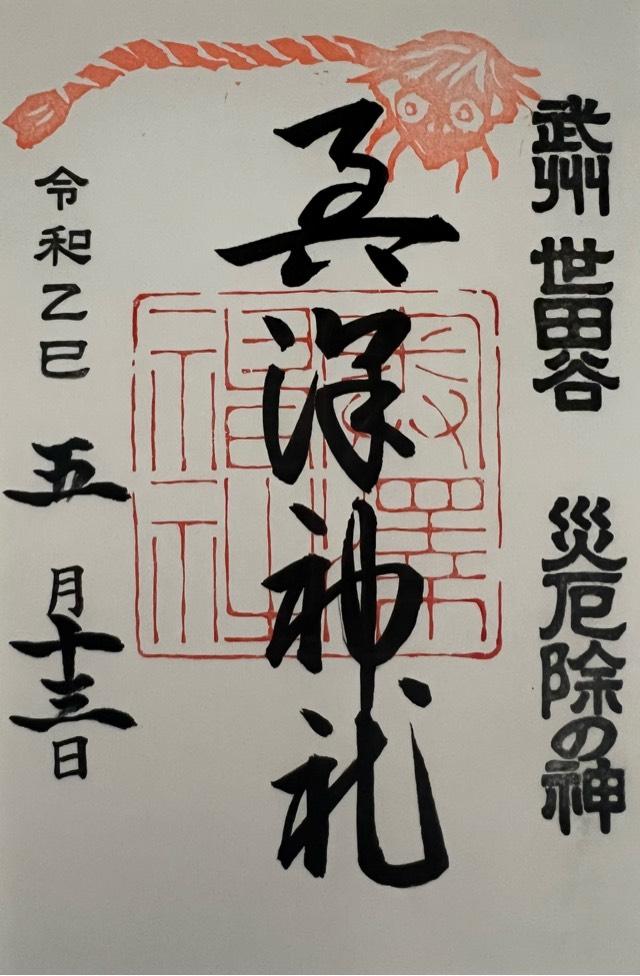 武州 世田谷 災厄除の神
奥澤神社
奥澤
神社
令和乙巳 五月十三日